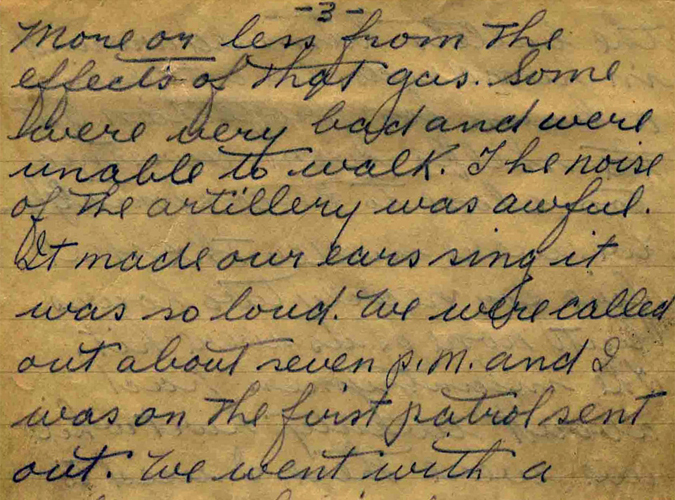 -3-
More or less from the
effects of that gas. Some
were very bad and were
unable to walk. The noise
of the artillery was awful.
It made our ears sing it
was so loud. We were called
out about seven p.m. and I
was on the first patrol sent
out. We went with a